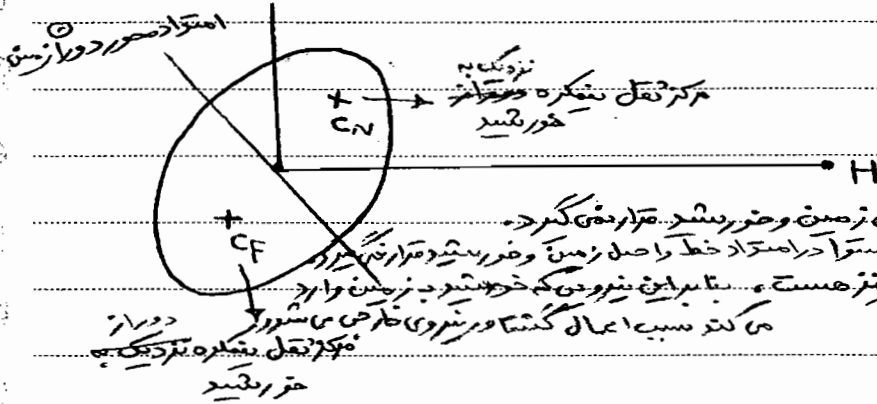 امتداد محور دوران زمین
نزدیک به
مرکز ثقل نیمکره دورتر از
خورشید
C_N
H
زمین و خورشید قرار نمی گیرد.
استوا در امتداد خط واصل زمین و خورشید قرار نمی گیرد
نیز هست. بنابراین نیرویی که خورشید به زمین وارد
می کند سبب اعمال گشتاور نیروی خارجی می شود
C_F
دور از
مرکز ثقل نیمکره نزدیک به
خورشید